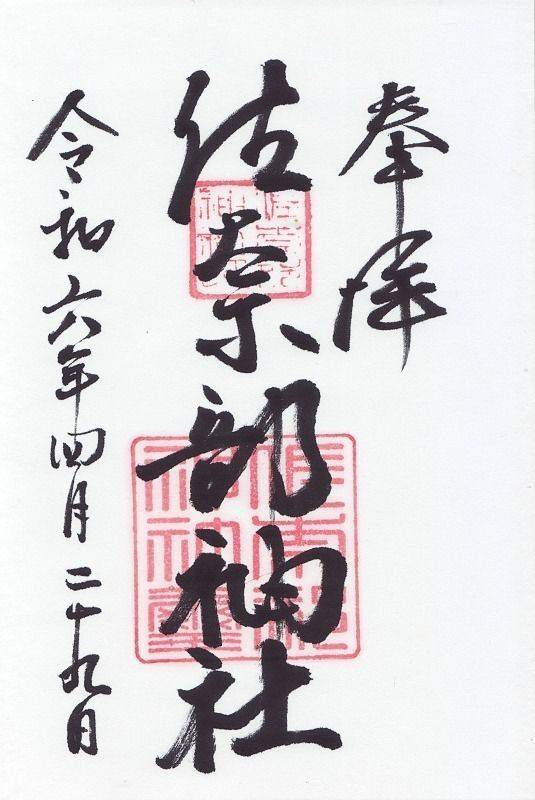 奉拝
佐奈部神社
令和六年四月二十九日